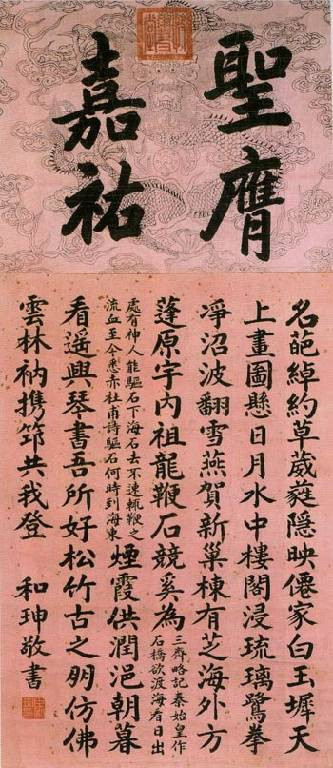 聖膺
嘉祐
名葩綽約草葳蕤隱映僊家白玉墀天
上畫圖懸日月水中樓閣浸琉璃鷺拳
凈沼波翻雪燕賀新巢棟有芝海外方
蓬原宇内祖龍鞭石競奚為三齊略記秦始皇作
石橋欲渡海看日出
處有神人能驅石下海石去不速輒鞭之
流血至今悉赤杜甫詩驅石何時到海東煙霞供潤浥朝暮
看遙興琴書吾所好松竹古之朋仿佛
雲林衲携筇共我登 和珅敬書